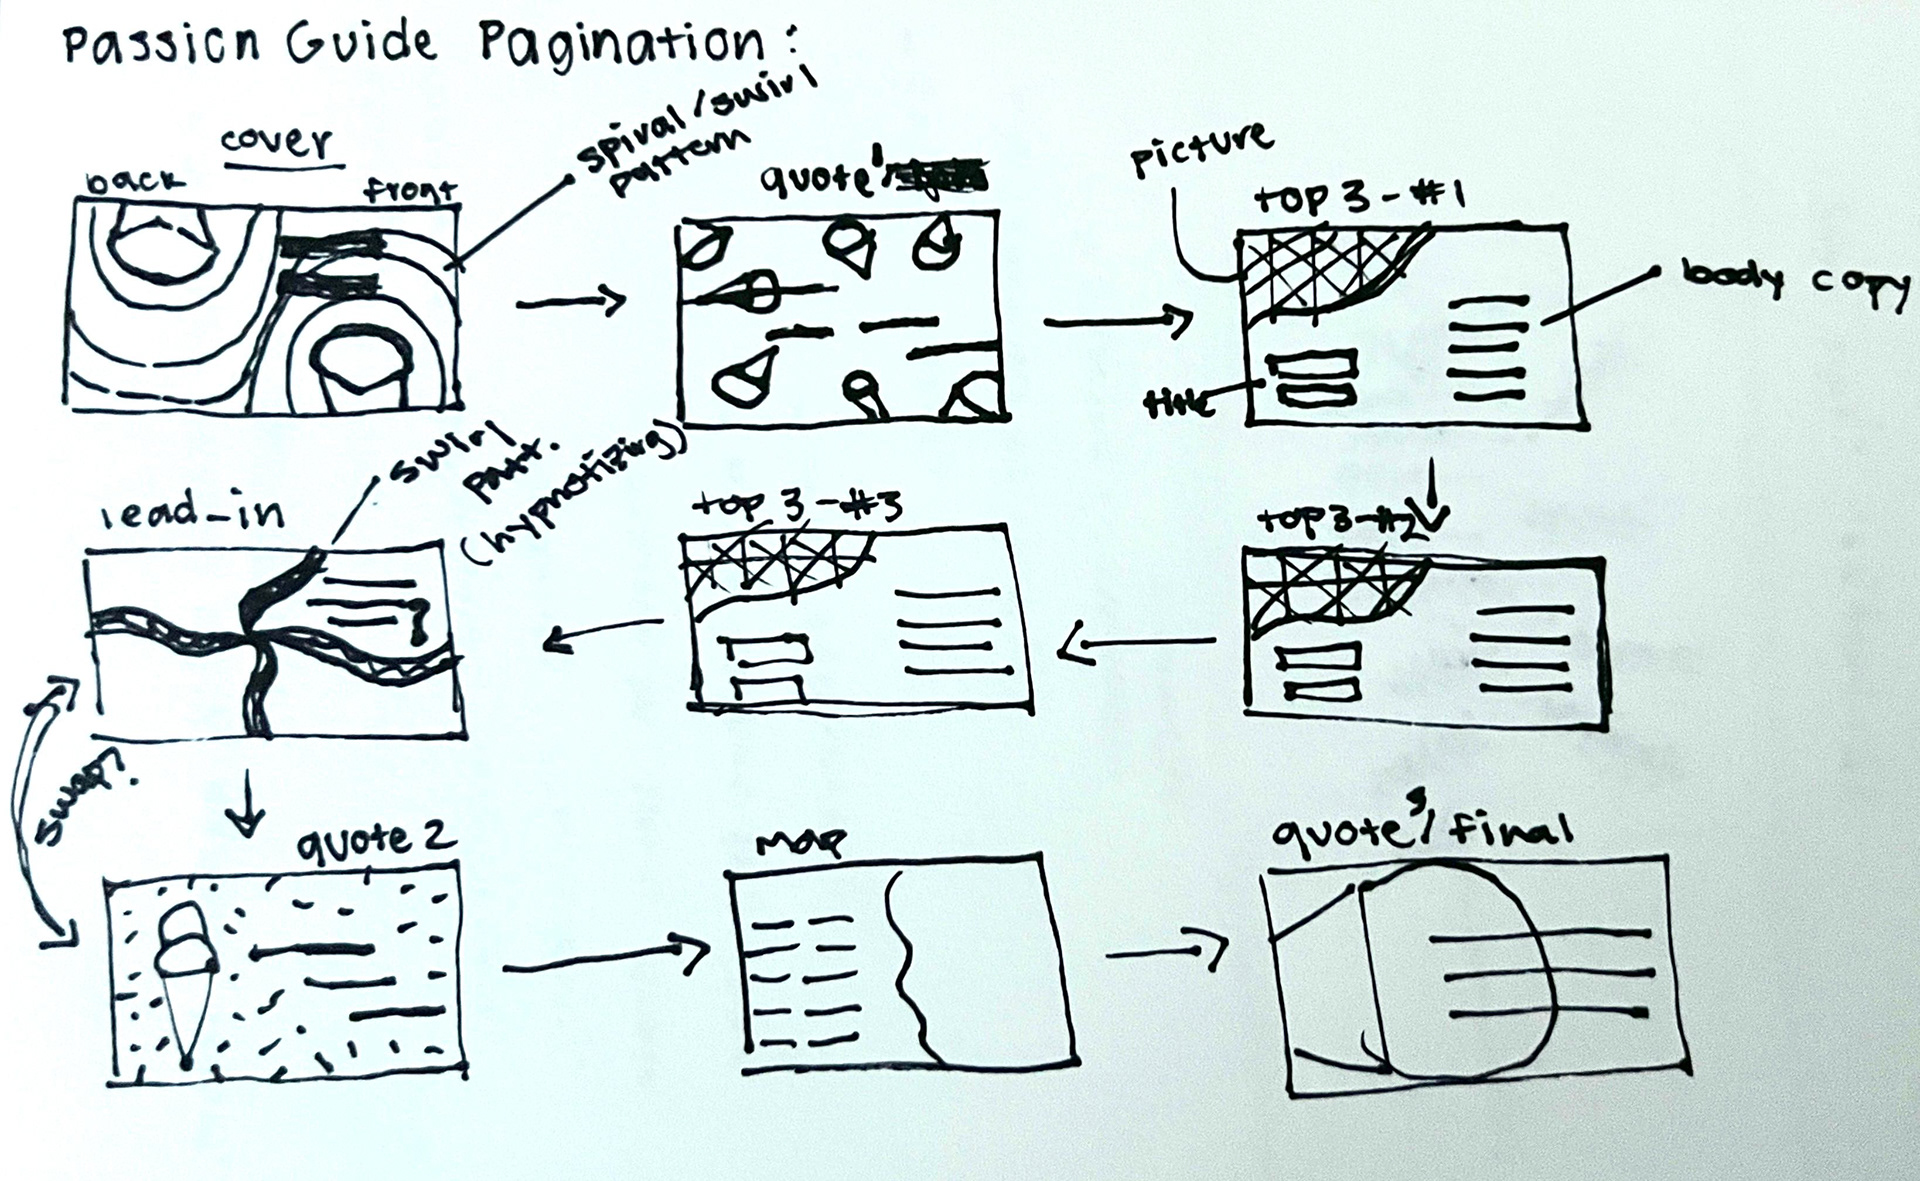 Passion Guide Pagination:
cover
back
front
spiral/swirl
pattern
quote 1/
picture
top 3-#1
body copy
title
lead-in
swirl
patt.
(hypnotizing)
top 3-#3
top 3-#2
swap?
quote 2
map
quote 3/final